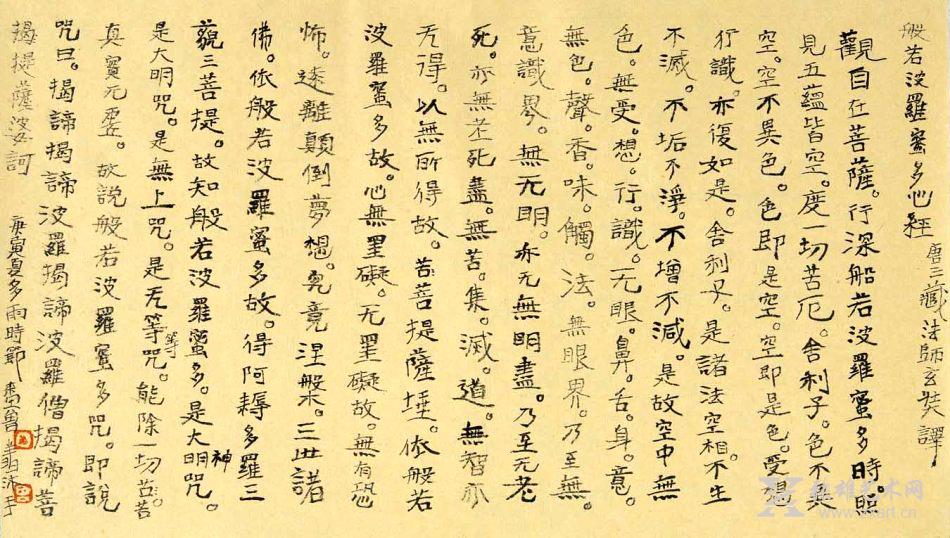 般若波羅蜜多心經 唐三藏法師玄奘譯
觀自在菩薩。行深船若波羅蜜多時。照
見五蘊皆空。度一切苦厄。舍利子。色不異
空。空不異色。色即是空。空即是色。受想
行識。亦復如是。舍利子。是諸法空相。不生
不滅。不垢不淨。不增不減。是故空中無
色。無受。想。行。識。无眼。鼻。舌。身。意。
無色。聲。香。味。觸。法。無眼界。乃至無
意識界。無无明。亦无無明盡。乃至无老
死。亦無老死盡。無苦。集。滅。道。無智亦
无得。以無所得故。苦菩提薩埵。依般若
波羅蜜多故。心無罣礙。无罣礙故。無有恐
怖。遠離顛倒夢想。究竟涅槃。三世諸
佛。依般若波羅蜜多故。得阿耨多羅三
藐三菩提。故知般若波羅蜜多。是大神明咒。
是大明咒。是無上咒。是无等等咒。能除一切苦。苦
真實无虛。故說般若波羅蜜多咒。即說
咒曰。揭諦揭諦波羅揭諦波羅僧揭諦菩
揭提薩婆訶 庚寅夏多雨時節
艺术网